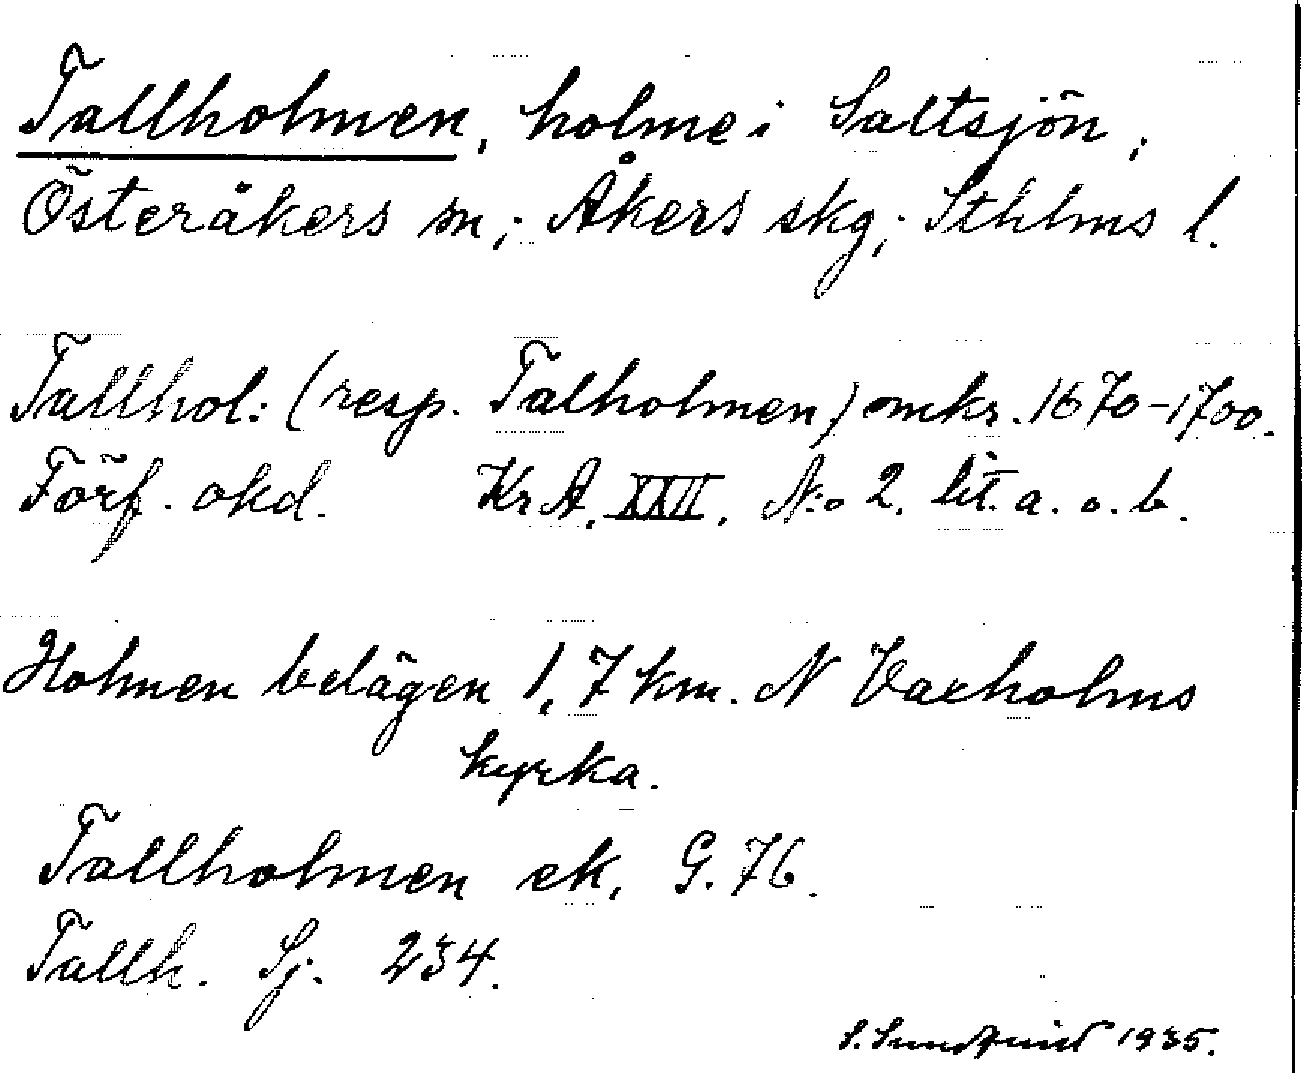 Tallholmen, holme i Saltsjön,
Österåkers sn, Åkers skg, Sthlms l.
Tallhol: (resp. Talholmen) omkr. 1670-1700.
Förf. okd. Kr A. XXII. N:o 2. lit. a. o. b.
Holmen belägen 1,7 km. N Vaxholms
kyrka.
Tallholmen ek. G. 76.
Tallh. Sj. 234.
S. Sundqvist 1935.